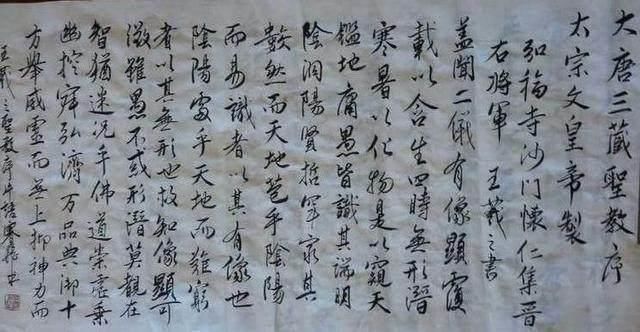 大唐三藏聖教序
太宗文皇帝製
弘福寺沙門懷仁集晋
右將軍王羲之書
蓋聞二儀有像顯覆
載以含生四時無形潛
寒暑以化物是以窺天
鑑地庸愚皆識其端明
陰洞陽賢哲罕窮其
數然而天地苞乎陰陽
而易識者以其有像也
陰陽處乎天地而難窮
者以其無形也故知像顯可
徵雖愚不或形潛莫覩在
智猶迷況乎佛道崇虛乘
幽控寂弘濟万品典御十
方舉威靈而無上抑神力而
王羲之聖教序